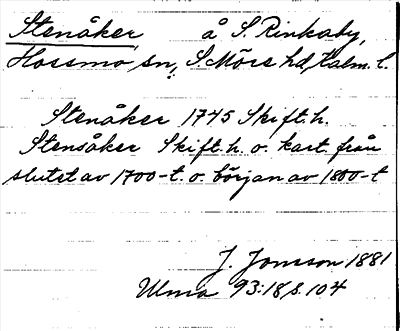 Stenåker å S. Rinkaby,
Hossmo sn, S. Möre hd, Kalm. l.
Stenåker 1745 Skift.h.
Stensåker Skift.h. o. kart. från
slutet av 1700-t. o. början av 1800-t
J. Jonsson 1881
Ulma 93:18, s. 104